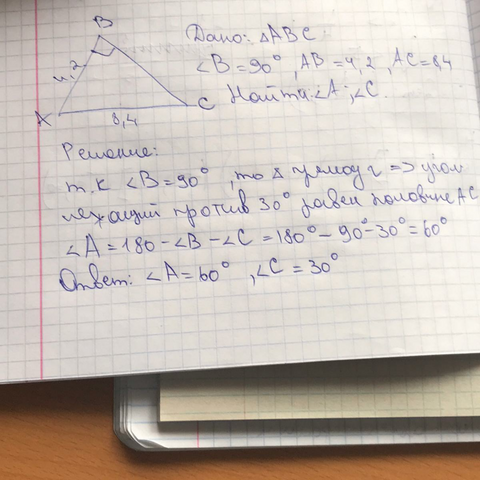 B
Дано: △ABC
4,2
∠B = 90°, AB = 4,2, AC = 8,4
Найти: ∠A; ∠C
A C
8,4
Решение:
т.к ∠B = 90°, то △ прямоуг => угол
лежащий против 30° равен половине AC
∠A = 180 - ∠B - ∠C = 180° - 90° - 30° = 60°
Ответ: ∠A = 60°, ∠C = 30°